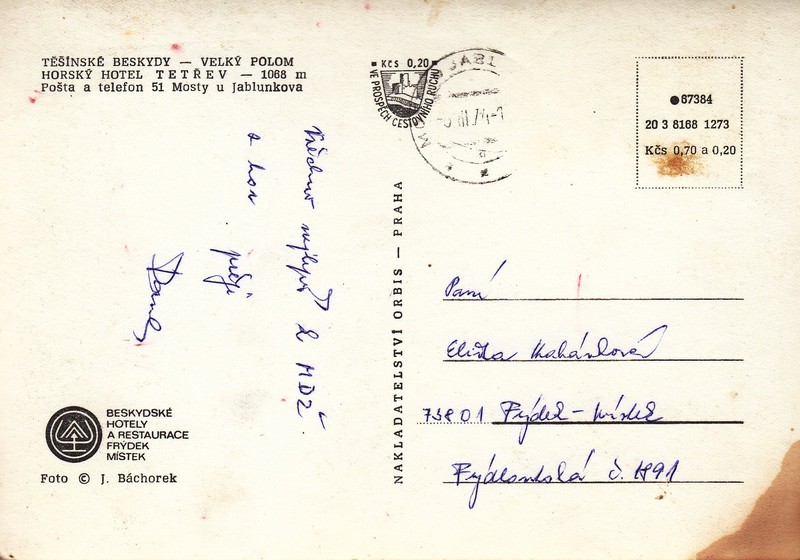 TĚŠÍNSKÉ BESKYDY — VELKÝ POLOM
HORSKÝ HOTEL TETŘEV — 1068 m
Pošta a telefon 51 Mosty u Jablunkova
Kčs 0,20
VE PROSPĚCH CESTOVNÍHO RUCHU
JABL
●67384
20 3 8168 1273
Kčs 0,70 a 0,20
Všechno nejlepší k MDŽ
z hor
přeje
NAKLADATELSTVÍ ORBIS — PRAHA
Paní
Eliška
73801 Frýdek-Místek
Frýdlantská č.
BESKYDSKÉ
HOTELY
A RESTAURACE
FRÝDEK
MÍSTEK
Foto © J. Báchorek